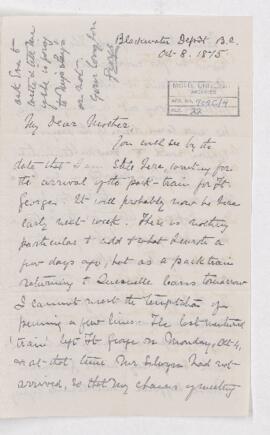 Blackwater Depot B.C.
Oct. 8. 1875
ask Eva to
write & tell me
if she is going
to
or not.
Yours
George
McGILL UNIVERSITY
ARCHIVES
ACC. NO.
REF. 22
My Dear Mother,
You will see by the
date that I am still here, waiting for
the arrival of the pack-train from Ft.
George. It will probably now be here
early next week. There is nothing
particular to add to what I wrote a
few days ago, but as a pack train
returning to Quesnelle leaves tomorrow
I cannot resist the temptation of
penning a few lines. The last
'train' left Ft. George on Monday, Oct. 4,
at that time Mr Selwyn had not
arrived, so that my chances of meeting